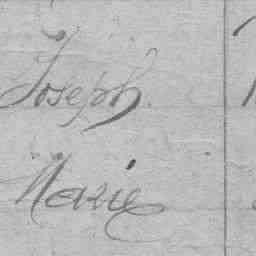 Joseph.
Marie